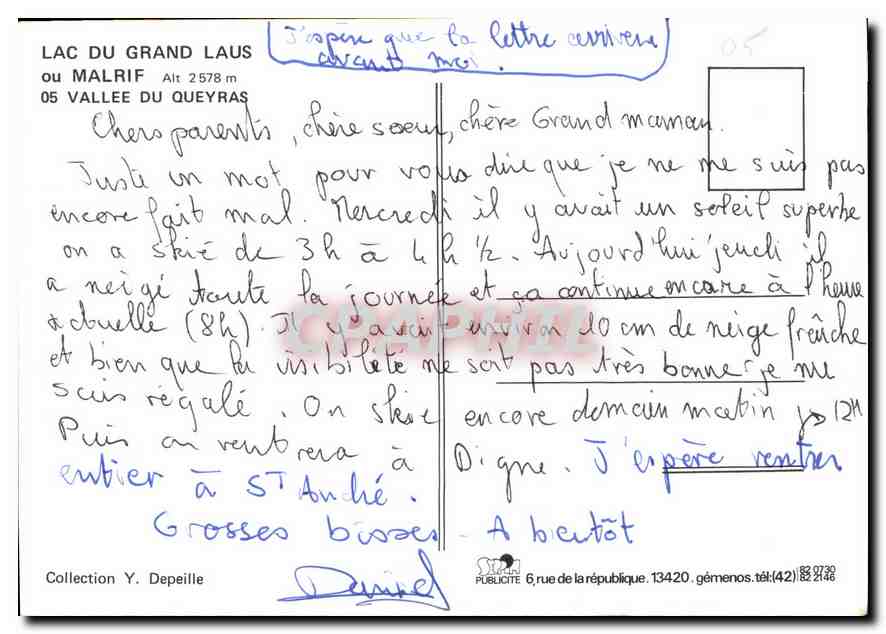 J'espère que la lettre arrivera
avant moi.
05
LAC DU GRAND LAUS
ou MALRIF Alt 2 578 m
05 VALLEE DU QUEYRAS
Chers parents, chère soeur, chère Grand maman.
Juste un mot pour vous dire que je ne me suis pas
encore fait mal. Mercredi il y avait un soleil superbe
on a skié de 3h à 4h 1/2. Aujourd'hui jeudi il
a neigé toute la journée et ça continue encore à l'heure
actuelle (8h). Il y avait environ 10 cm de neige fraîche
et bien que la visibilité ne soit pas très bonne je me
suis régalé. On skie encore demain matin 12H
Puis on rentrera à Digne. J'espère rentrer
entier à St André.
Grosses bisses - A bientôt
Daniel
CPAPHIL
Collection Y. Depeille
PUBLICITE 6, rue de la république. 13420. gémenos. tél:(42) 82 0730
82 2146